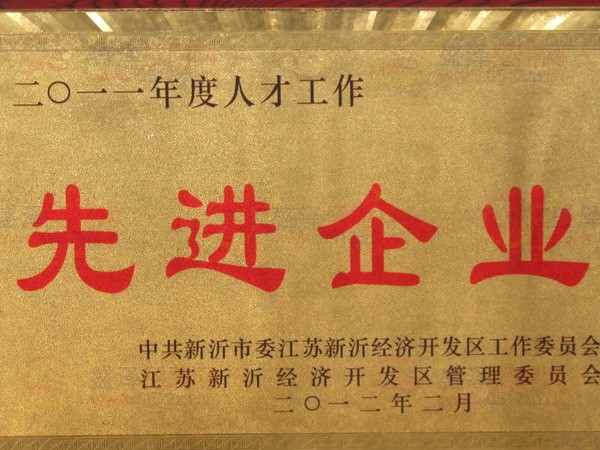 二〇一一年度人才工作
先进企业
中共新沂市委江苏新沂经济开发区工作委员会
江苏新沂经济开发区管理委员会
二〇一二年二月